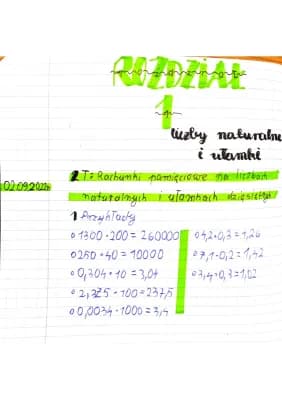 ROZDZIAŁ
1
liczby naturalne
i ułamki
02.09.2021r
2 T: Rachunki pamięciowe na liczbach
naturalnych i ułamkach dziesiętnych
1 Przykłady
1300 · 200 = 260000
250 · 40 = 10000
0,304 · 10 = 3,04
2,375 · 100 = 237,5
0,0034 · 1000 = 3,4
4,2 · 0,3 = 1,26
7,1 · 0,2 = 1,42
3,4 · 0,3 = 1,02